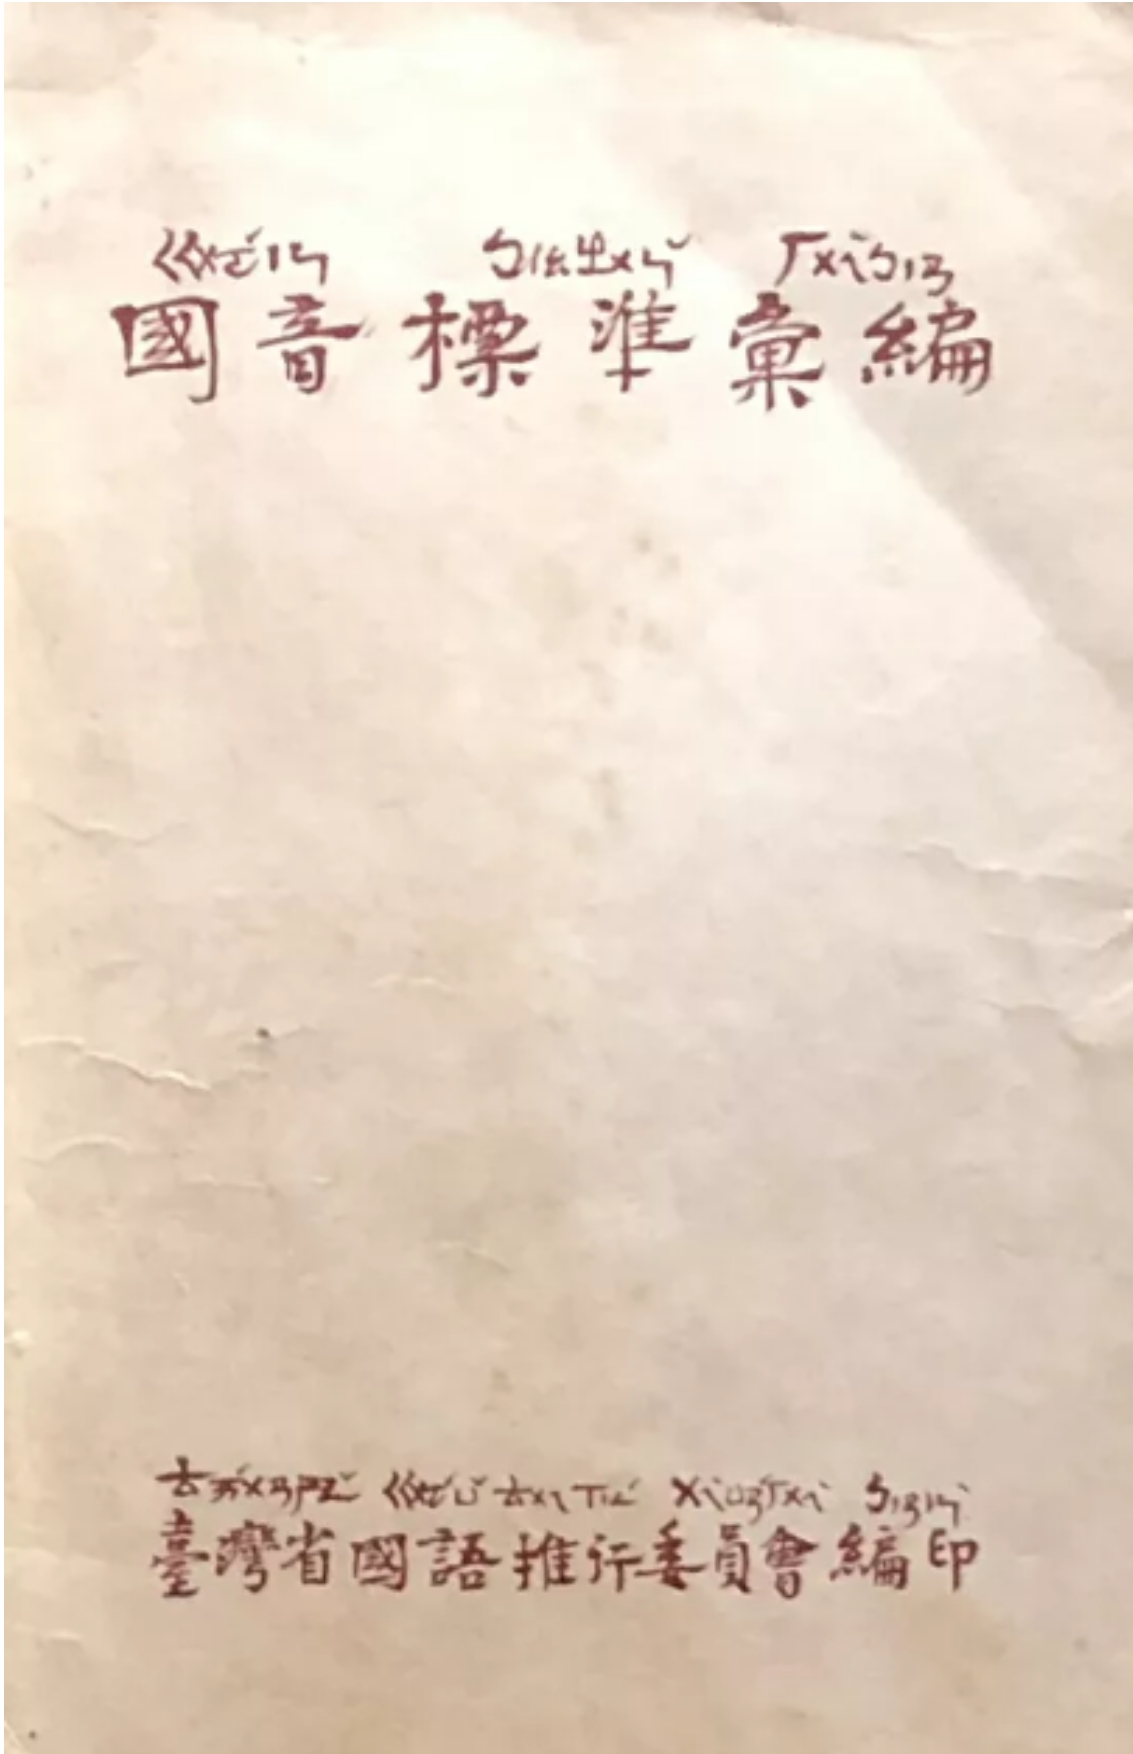 ㄍㄨㄛˊㄧㄣ ㄅㄧㄠㄓㄨㄣˇ ㄏㄨㄟˋㄅㄧㄢ
國音標準彙編
ㄊㄞˊㄨㄢㄕㄥˇ ㄍㄨㄛˊㄩˇ ㄊㄨㄟㄒㄧㄥˊ ㄨㄟˇㄩㄢˊㄏㄨㄟˋ ㄅㄧㄢㄧㄣˋ
臺灣省國語推行委員會編印